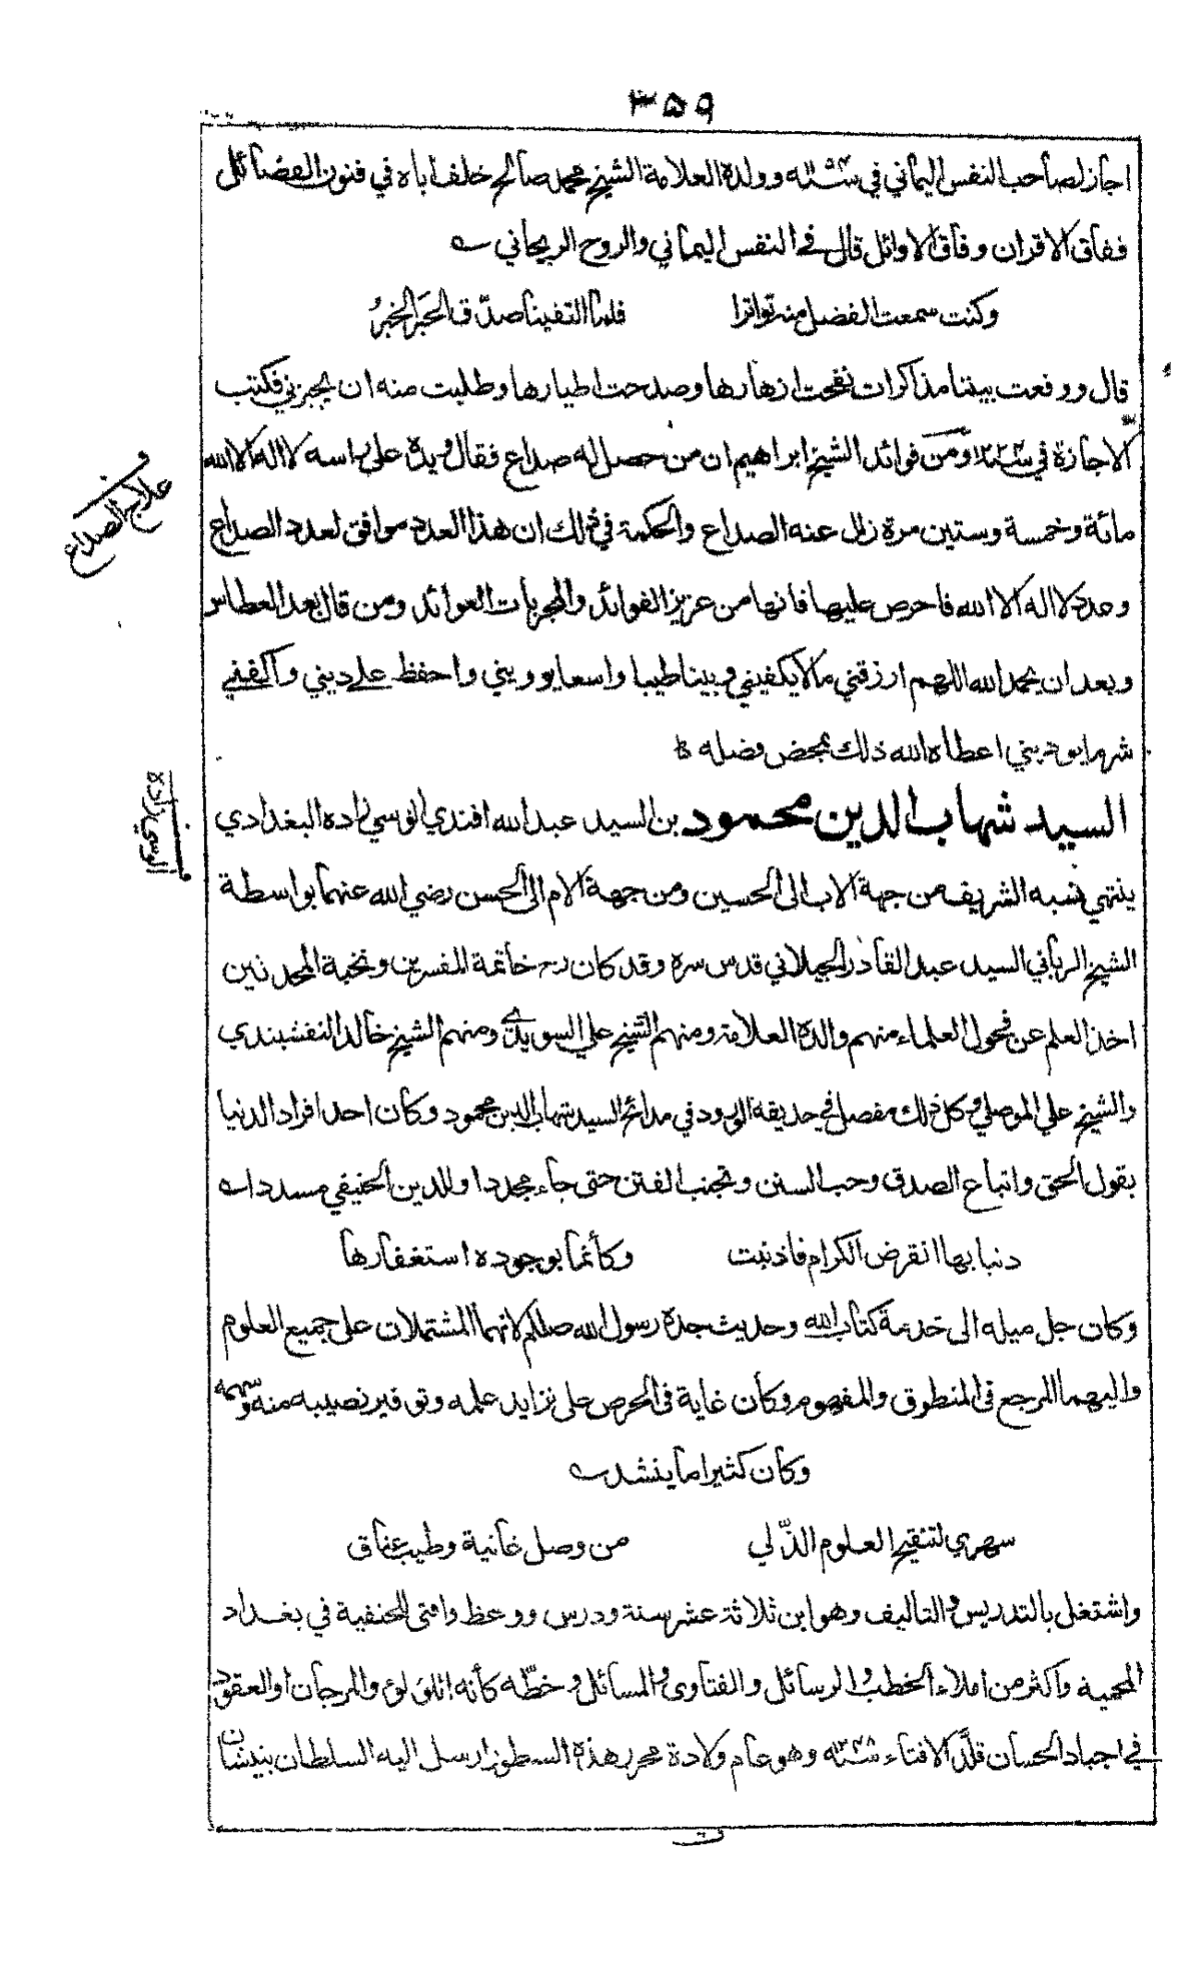 ٣٥٩
اجاز لصاحب النفس اليماني في سنة وولدة العلامة الشيخ محمد صالح خلف أباه في فنون الفضائل
ففاق الاقران وفاق الاوائل قال في النفس اليماني والروح الريحاني
وكنت سمعت الفضل منه تواترا فلما التقينا صدّق الخَبَر الخُبرُ
قال ووقعت بيننا مذاكرات نفحت ازهارها وصدحت اطيارها وطلبت منه ان يجيزني فكتب
الاجازة في سنة ومن فوائد الشيخ ابراهيم ان من حصل له صداع فقال ويده على راسه لا اله الا الله
مائة وخمسة وستين مرة زال عنه الصداع والحكمة في ذلك ان هذا العدد موافق لعدد الصداع
وعدد لا اله الا الله فاحرص عليها فانها من عزيز الفوائد والمجربات العوائد ومن قال بعد العطاس
وبعد ان يحمد الله اللهم ارزقني مالا يكفيني وبيتا طيبا واسعا يوويني واحفظ علي ديني واكفني
شر ما يوذيني اعطاه الله ذلك بمحض فضله
السيد شهاب الدين محمود بن السيد عبد الله افندي الوسي زاده البغدادي
ينتهي نسبه الشريف من جهة الاب الى الحسين ومن جهة الام الى الحسن رضي الله عنهما بواسطة
الشيخ الرباني السيد عبد القادر الجيلاني قدس سره وقد كان رح خاتمة المفسرين ونخبة المحدثين
اخذ العلم عن فحول العلماء منهم والده العلامة ومنهم الشيخ علي السويدي ومنهم الشيخ خالد النقشبندي
والشيخ علي الموصلي وكل ذلك مفصل في حديقة الورود في مدائح السيد شهاب الدين محمود وكان احد افراد الدنيا
بقول الحق واتباع الصدق وحب السنن وتجنب الفتن حتى جاء مجددا وللدين الحنيفي مسددا
دنيا بها انقرض الكرام فاذنبت وكأنما بوجوده استغفارها
وكان جل ميله الى خدمة كتاب الله وحديث جده رسول الله صللم لانهما المشتملان على جميع العلوم
واليهما المرجع في المنطوق والمفهوم وكان غاية في الحرص على تزايد علمه وتوفير نصيبه منه وسهمه
وكان كثيرا ما ينشد
سهري لتنقيح العلوم الذّ لي من وصل غانية وطيب عناق
واشتغل بالتدريس والتاليف وهو ابن ثلاثة عشر سنة ودرس ووعظ وافتى للحنفية في بغداد
المحمية واكثر من املاء الخطب والرسائل والفتاوى والمسائل وخطّه كأنه اللؤلؤ والمرجان او العقود
في اجياد الحسان قلّد الافتاء سنة ١٢٤٨ وهو عام ولادة محرر هذه السطور ارسل اليه السلطان بنيشان
ف علاج الصداع
الوسي زاده